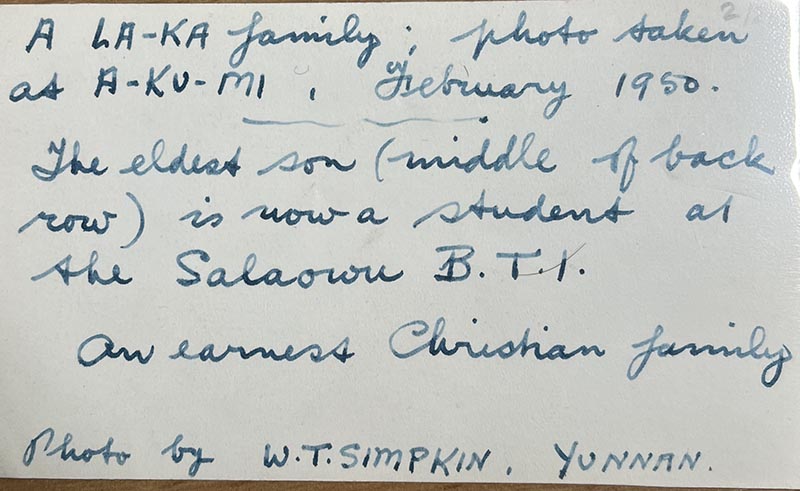 A LA-KA family; photo taken
at A-KU-MI, February 1950.
The eldest son (middle of back
row) is now a student at
the Salaowu B.T.I.
An earnest Christian family
Photo by W.T. SIMPKIN, YUNNAN.